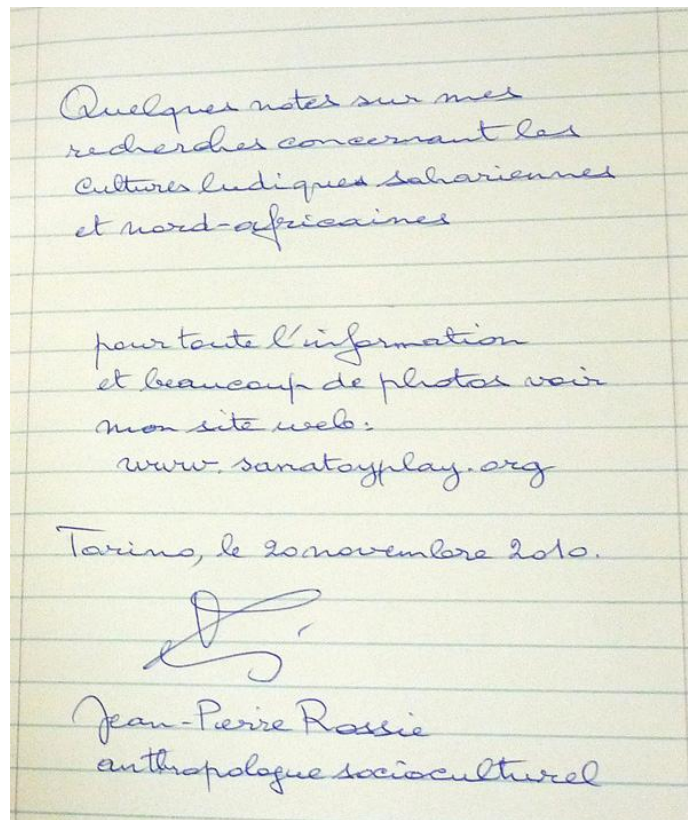 Quelques notes sur mes
recherches concernant les
cultures ludiques sahariennes
et nord-africaines
pour toute l'information
et beaucoup de photos voir
mon site web:
www.sanatoyplay.org
Torino, le 20 novembre 2010.
Jean-Pierre Rossie
anthropologue socioculturel